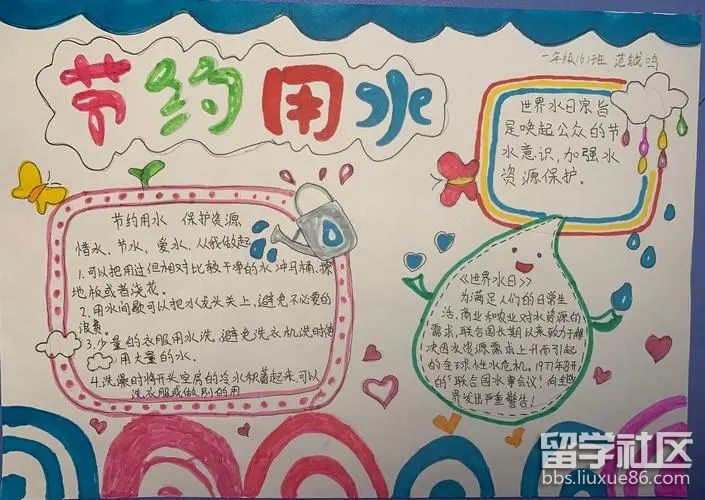 节约用水
一年级(6)班 范越鸣
世界水日宗旨
是唤起公众的节
水意识,加强水
资源保护。
节约用水 保护资源
惜水、节水、爱水、从我做起
1.可以把用过但相对比较干净的水冲马桶、擦
地板或者浇花。
2.用水间歇可以把水龙头关上,避免不必要的
浪费。
3.少量的衣服用水洗,避免洗衣机洗时使
用大量的水。
4.洗澡时将开头空房的冷水积蓄起来,可以
洗衣服或做别的用
《世界水日》
为满足人们的日常生
活、商业和农业对水资源的
需求,联合国长期以来致力于解
决因水资源需求上升而引起
的全球性水危机。1977年召开
的"联合国水事会议"向全世
界发出严重警告!
留学社区
bbs.liuxue86.com